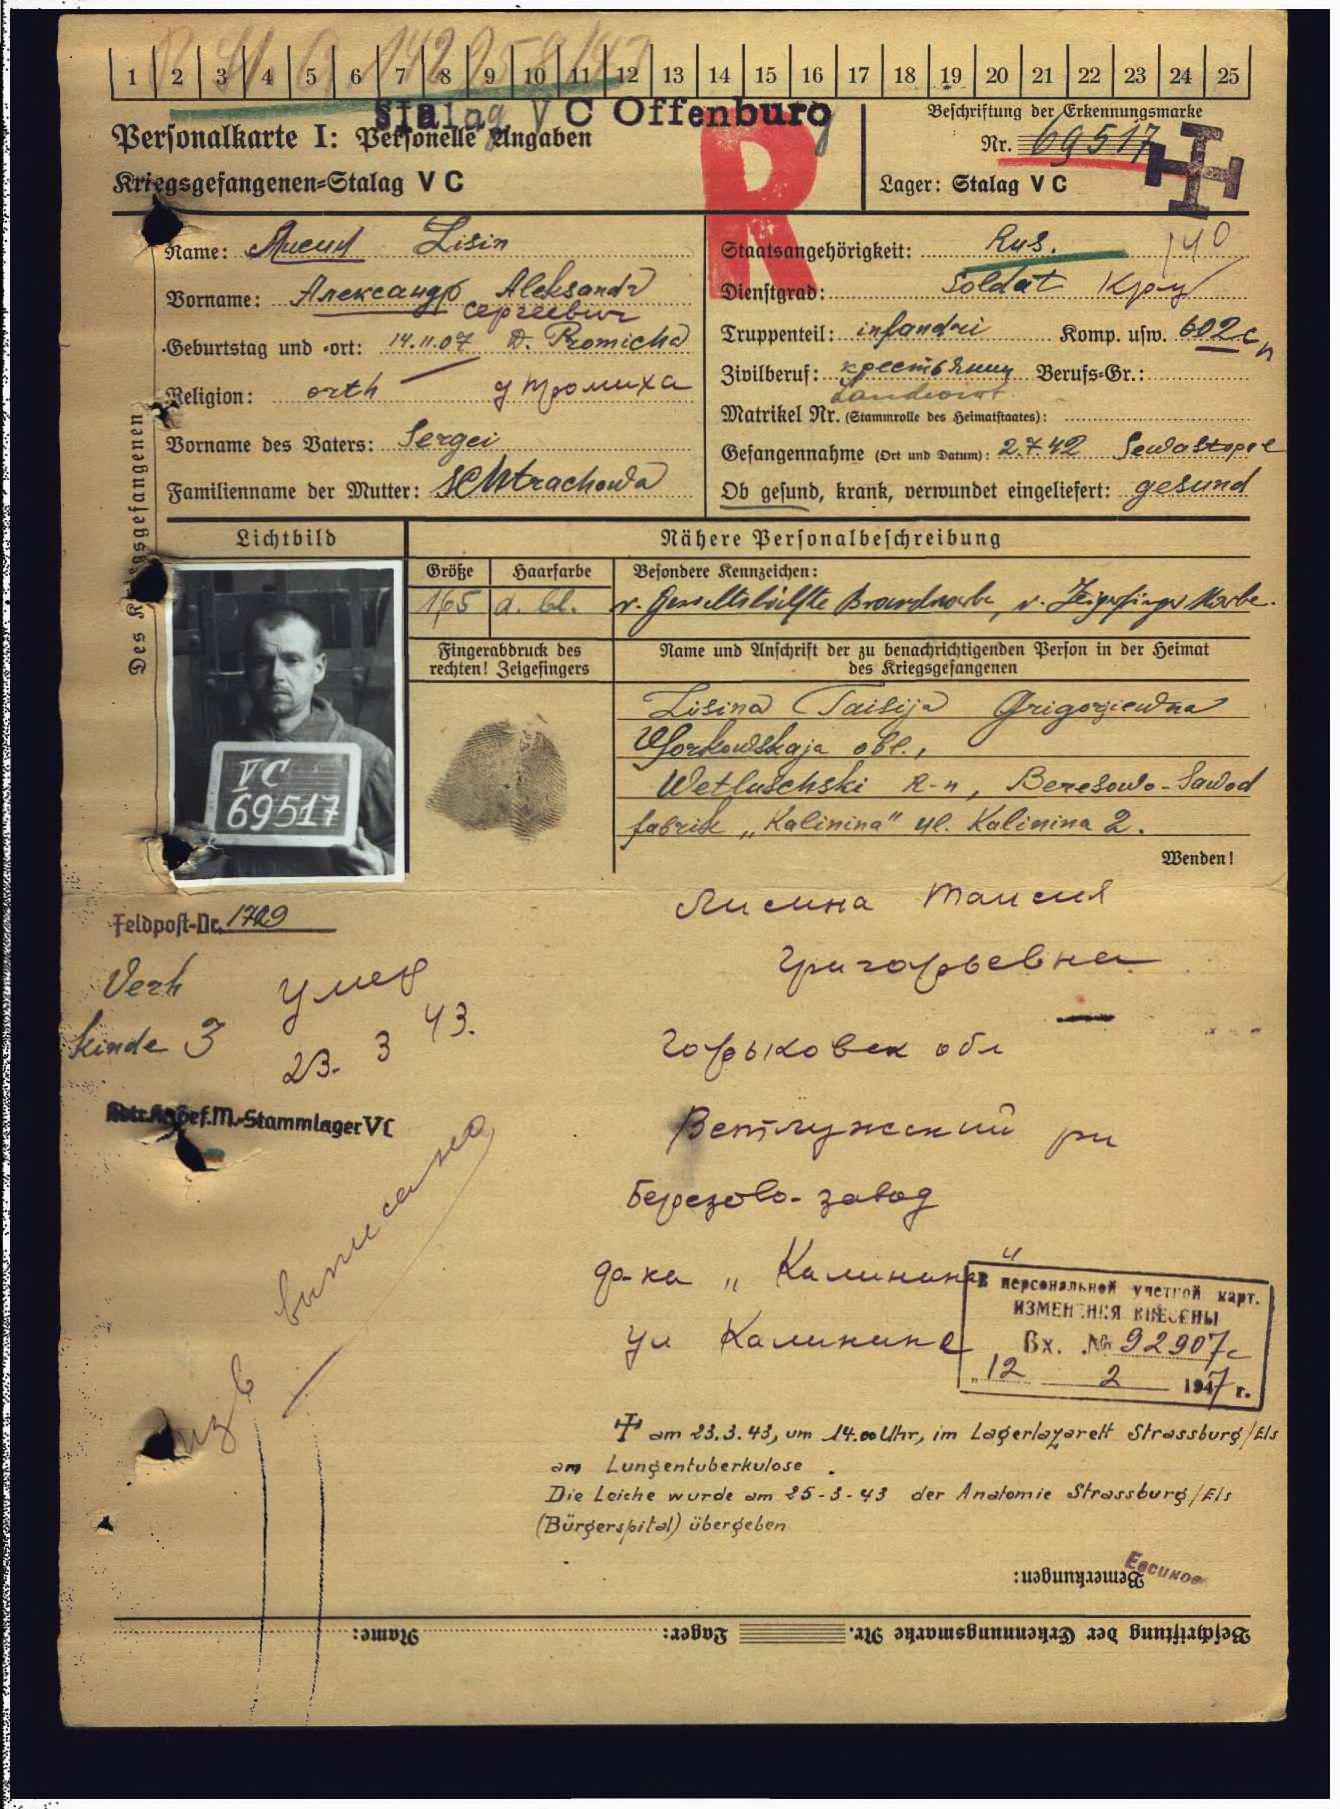 1 2 3 4 5 6 7 8 9 10 11 12 13 14 15 16 17 18 19 20 21 22 23 24 25
Stalag V C Offenburg
Personalkarte I: Personelle Angaben
Kriegsgefangenen-Stalag V C
R
Beschriftung der Erkennungsmarke
Nr. 69517
Lager: Stalag V C
140
Name: Лисин Lisin
Vorname: Александр Aleksandr
Сергеевич
Geburtstag und -ort: 14.11.07 D. Promicha
Religion: orth д Промиха
Vorname des Vaters: Sergei
Familienname der Mutter: Schtrachowa
Staatsangehörigkeit: Rus.
Dienstgrad: Soldat Кр
Truppenteil: infandri Komp. usw. 602 сп
Zivilberuf: крестьянин Berufs-Gr.:
Landwirt
Matrikel Nr. (Stammrolle des Heimatstaates):
Gefangennahme (Ort und Datum): 2.7.42 Sewastopol
Ob gesund, krank, verwundet eingeliefert: gesund
Des Kriegsgefangenen
Lichtbild
Nähere Personalbeschreibung
Größe Haarfarbe Besondere Kennzeichen:
1,65 d. bl. r. Gesichtshälfte Brandnarbe, r. Zeigefinger Narbe.
Fingerabdruck des
rechten! Zeigefingers
Name und Anschrift der zu benachrichtigenden Person in der Heimat
des Kriegsgefangenen
Lisina Taisija Grigorjewna
Gorkowskaja obl.,
Wetluschski R-n, Beresowo-Sawod
fabrik "Kalinina" ul. Kalinina 2.
Wenden!
VC
69517
Feldpost-Nr. 1729
Verh
Kinde 3
умер
23. 3 43.
Kgef.M.-Stammlager VC
Лисина Таисия
Григорьевна
Горьковск обл
Ветлужский рн
Березово-завод
"Калинина"
ул Калинине
выписано
изв
В персональной учетной карт.
ИЗМЕНЕНИЯ ВНЕСЕНЫ
Вх. № 92907с
"12 2 1947 г.
am 23.3.43, um 14.00 Uhr, im Lagerlazarett Strassburg/Els
am Lungentuberkulose.
Die Leiche wurde am 25-3-43 der Anatomie Strassburg/Els
(Bürgerspital) übergeben
Евсиков
Bemerkungen:
Beschriftung der Erkennungsmarke Nr. Lager: Name: